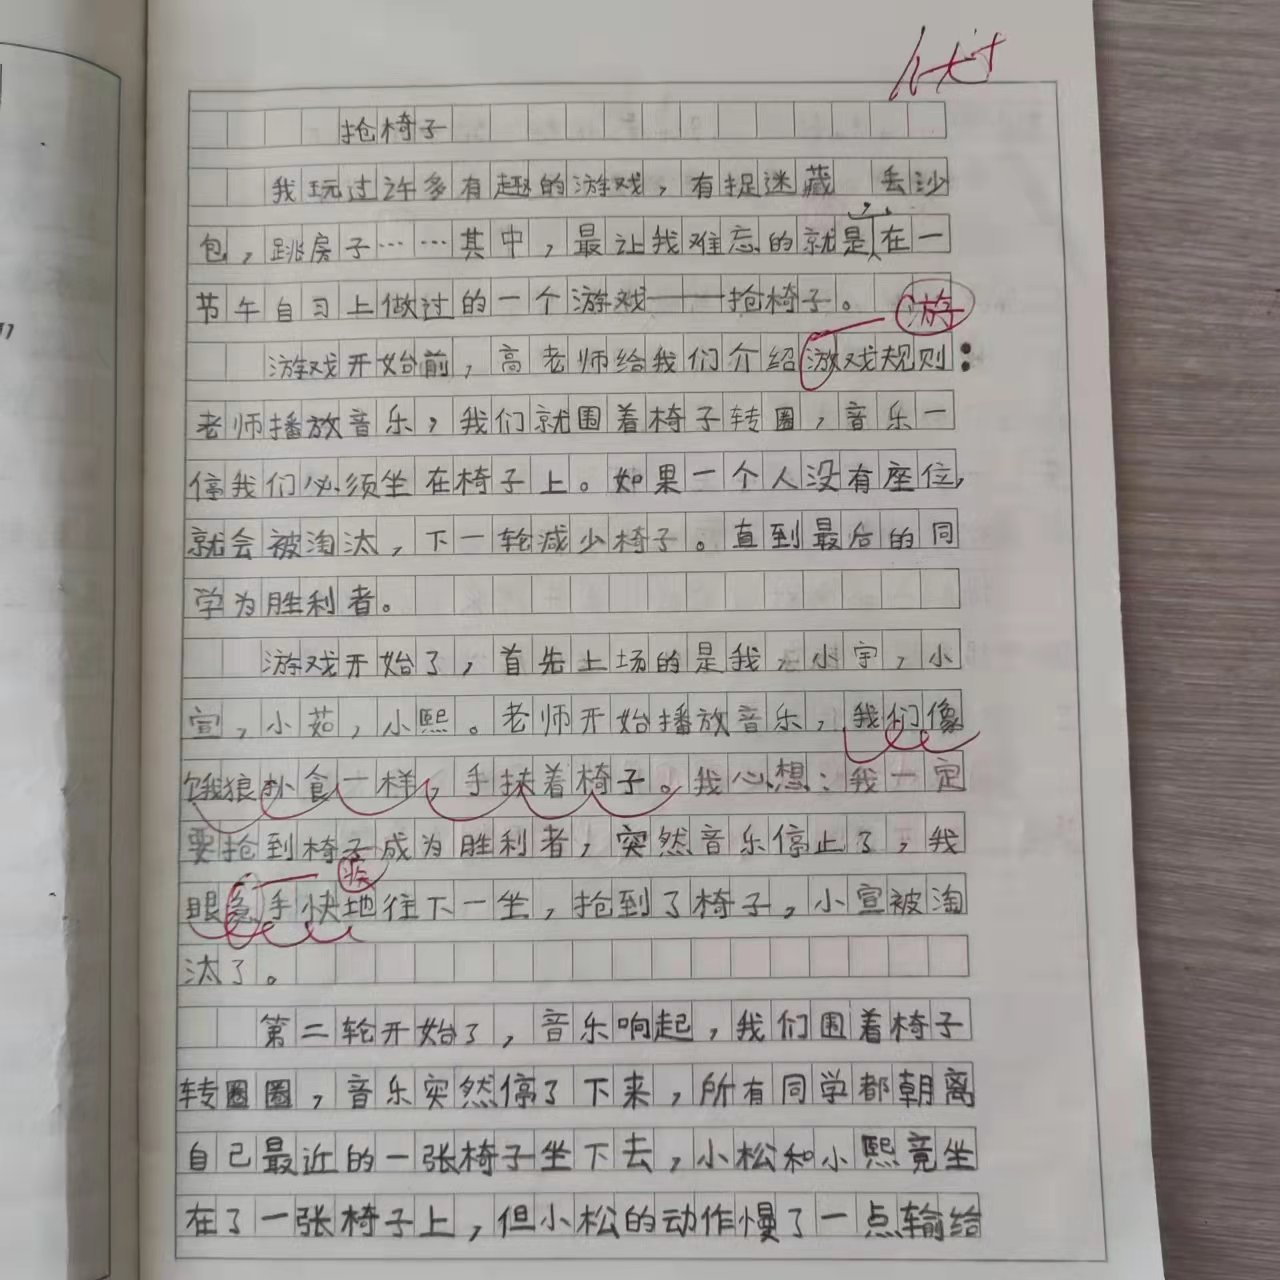 优
抢椅子
我玩过许多有趣的游戏，有捉迷藏 丢沙
包，跳房子……其中，最让我难忘的就是在一
节午自习上做过的一个游戏——抢椅子。
游
游戏开始前，高老师给我们介绍游戏规则：
老师播放音乐，我们就围着椅子转圈，音乐一
停我们必须坐在椅子上。如果一个人没有座位，
就会被淘汰，下一轮减少椅子。直到最后的同
学为胜利者。
游戏开始了，首先上场的是我，小宇，小
宣，小茹，小熙。老师开始播放音乐，我们像
饿狼扑食一样，手扶着椅子。我心想：我一定
要抢到椅子成为胜利者，突然音乐停止了，我
疾
眼急手快地往下一坐，抢到了椅子，小宣被淘
汰了。
第二轮开始了，音乐响起，我们围着椅子
转圈圈，音乐突然停了下来，所有同学都朝离
自己最近的一张椅子坐下去，小松和小熙竟坐
在了一张椅子上，但小松的动作慢了一点输给